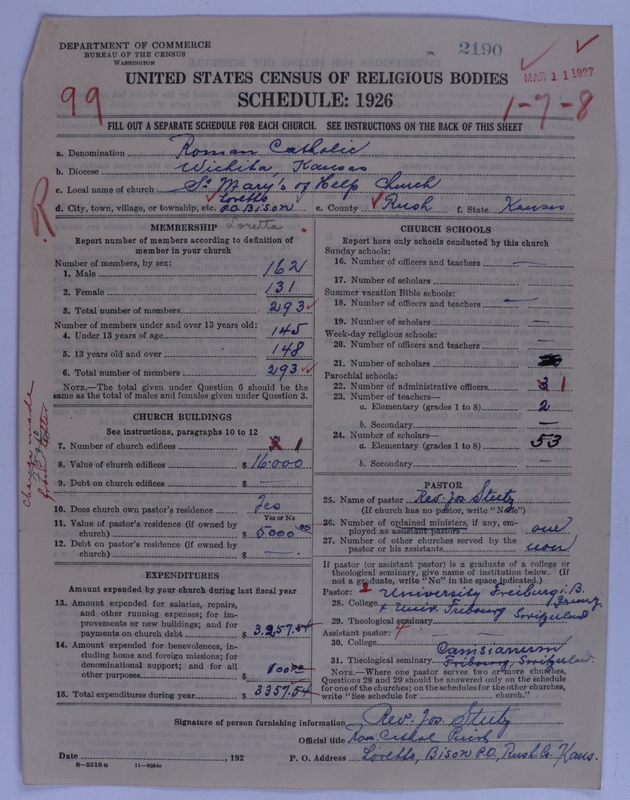 DEPARTMENT OF COMMERCE
BUREAU OF THE CENSUS
WASHINGTON
2190
MAR 11 1927
UNITED STATES CENSUS OF RELIGIOUS BODIES
SCHEDULE: 1926
99
1-7-8
FILL OUT A SEPARATE SCHEDULE FOR EACH CHURCH. SEE INSTRUCTIONS ON THE BACK OF THIS SHEET
a. Denomination Roman Catholic
b. Diocese Wichita, Kansas
c. Local name of church St Mary's of Help Church
d. City, town, village, or township, etc. Loretto P.O. Bison e. County Rush f. State Kansas
R
MEMBERSHIP Loretta
Report number of members according to definition of member in your church
Number of members, by sex:
1. Male 162
2. Female 131
3. Total number of members 293
Number of members under and over 13 years old:
4. Under 13 years of age 145
5. 13 years old and over 148
6. Total number of members 293
NOTE.—The total given under Question 6 should be the same as the total of males and females given under Question 3.
change made
CHURCH BUILDINGS
See instructions, paragraphs 10 to 12
7. Number of church edifices 1
8. Value of church edifices $ 16.000
9. Debt on church edifices $ —
10. Does church own pastor's residence Yes
Yes or No
11. Value of pastor's residence (if owned by church) $ 5000 00
12. Debt on pastor's residence (if owned by church) $ —
EXPENDITURES
Amount expended by your church during last fiscal year
13. Amount expended for salaries, repairs, and other running expenses; for improvements or new buildings; and for payments on church debt $ 3.257.54
14. Amount expended for benevolences, including home and foreign missions; for denominational support; and for all other purposes $ 100.00
15. Total expenditures during year $ 3357.54
CHURCH SCHOOLS
Report here only schools conducted by this church
Sunday schools:
16. Number of officers and teachers —
17. Number of scholars
Summer vacation Bible schools:
18. Number of officers and teachers —
19. Number of scholars —
Week-day religious schools:
20. Number of officers and teachers —
21. Number of scholars
Parochial schools:
22. Number of administrative officers 1
23. Number of teachers—
a. Elementary (grades 1 to 8) 2
b. Secondary —
24. Number of scholars—
a. Elementary (grades 1 to 8) 53
b. Secondary
PASTOR
25. Name of pastor Rev. Jos Steetz
(If church has no pastor, write "None")
26. Number of ordained ministers, if any, employed as assistant pastors one
27. Number of other churches served by the pastor or his assistants non
If pastor (or assistant pastor) is a graduate of a college or theological seminary, give name of institution below. (If not a graduate, write "No" in the space indicated.)
Pastor: 1 University Freiburg i. B.
28. College + Univ. Fribourg Switzerland
29. Theological seminary
Assistant pastor: 4
30. College Canisianum
31. Theological seminary Fribourg, Switzerland.
NOTE.—Where one pastor serves two or more churches, Questions 28 and 29 should be answered only on the schedule for one of the churches; on the schedules for the other churches, write "See schedule for ........ church."
Signature of person furnishing information Rev. Jos. Steetz
Official title Rom. Cathol Priest
Date , 192 P. O. Address Loretto, Bison P.O., Rush Co. Kans.
8-5318a 11-9054